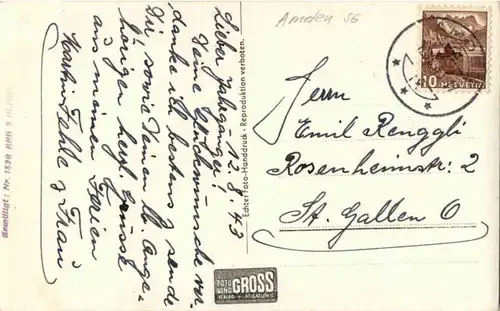 Amden SG
12.8.43
Lieber Jahrgänger!
Deine Glückwünsche ver-
danke ich bestens u. sende
Dir, sowie Deinen lb. Ange-
hörigen herzl. Grüsse
aus meinen Ferien
& Frau
Herrn
Emil Renggli
Rosenheimstr. 2
St. Gallen O
10
HELVETIA
Echter Foto-Handdruck - Reproduktion verboten.
Bewilligt: Nr. 1520 BRB 3
FOTO
HANS
GROSS
VERLAG
ST. GALLEN